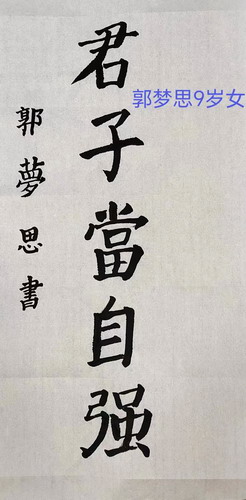 君子當自强
郭梦思9岁女
郭夢思書